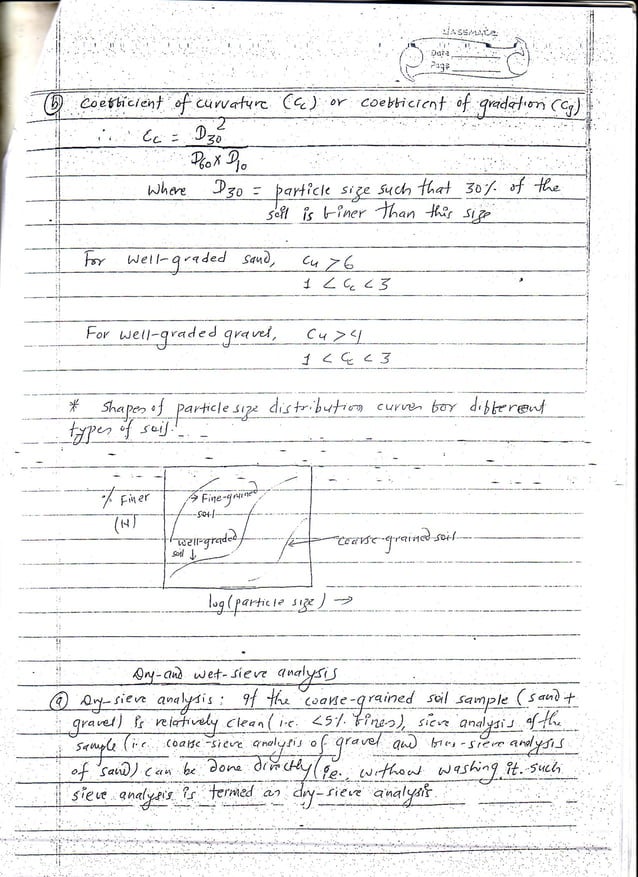 CLASSMATE
Date
Page
(b) Coefficient of curvature (Cc) or coefficient of gradation (Cg)
∴ Cc = D30² / D60 x D10
Where D30 = particle size such that 30% of the
soil is finer than this size
For well-graded sand, Cu > 6
1 < Cc < 3
For well-graded gravel, Cu > 4
1 < Cc < 3
* Shapes of particle size distribution curves for different
types of soil.
% Finer
(N)
→ Fine-grained
soil
well-graded
soil ↓
coarse-grained soil
log (particle size) →
Dry-and wet-sieve analysis
(a) Dry-sieve analysis: If the coarse-grained soil sample (sand +
gravel) is relatively clean (i.e. <5% fines), sieve analysis of the
sample (i.e. coarse-sieve analysis of gravel and fine-sieve analysis
of sand) can be done directly (i.e., without washing it. such
sieve analysis is termed as dry-sieve analysis